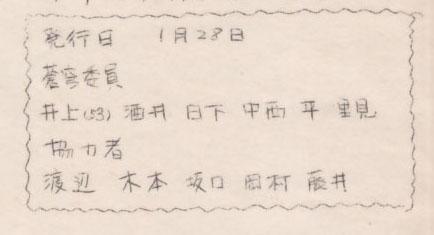 発行日 1月28日
蒼穹委員
井上(53) 酒井 日下 中西 平 里見
協力者
渡辺 木本 坂口 岡村 藤井